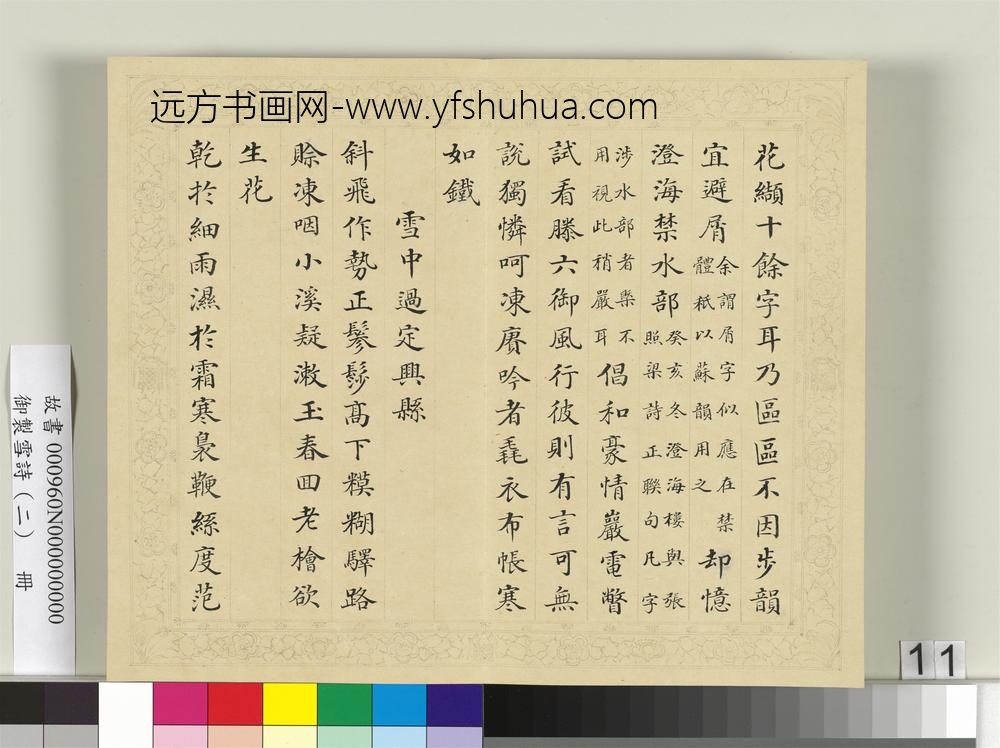 远方书画网-www.yfshuhua.com
花纈十餘字耳乃區區不因步韻
宜避屑
余謂屑字似應在禁
體秪以蘇韻用之
却憶
澄海禁水部
癸亥冬澄海樓與張
照梁詩正聯句凡字
涉水部者槩不
用視此稍嚴耳
倡和豪情巖電瞥
試看滕六御風行彼則有言可無
說獨憐呵凍賡吟者毳衣布帳寒
如鐵
雪中過定興縣
斜飛作勢正鬖髿髙下糢糊驛路
賒凍咽小溪疑漱玉春囬老檜欲
生花
乾於細雨濕於霜寒裊鞭絲度范
故書 000960N000000000
御製雪詩(二) 冊
11